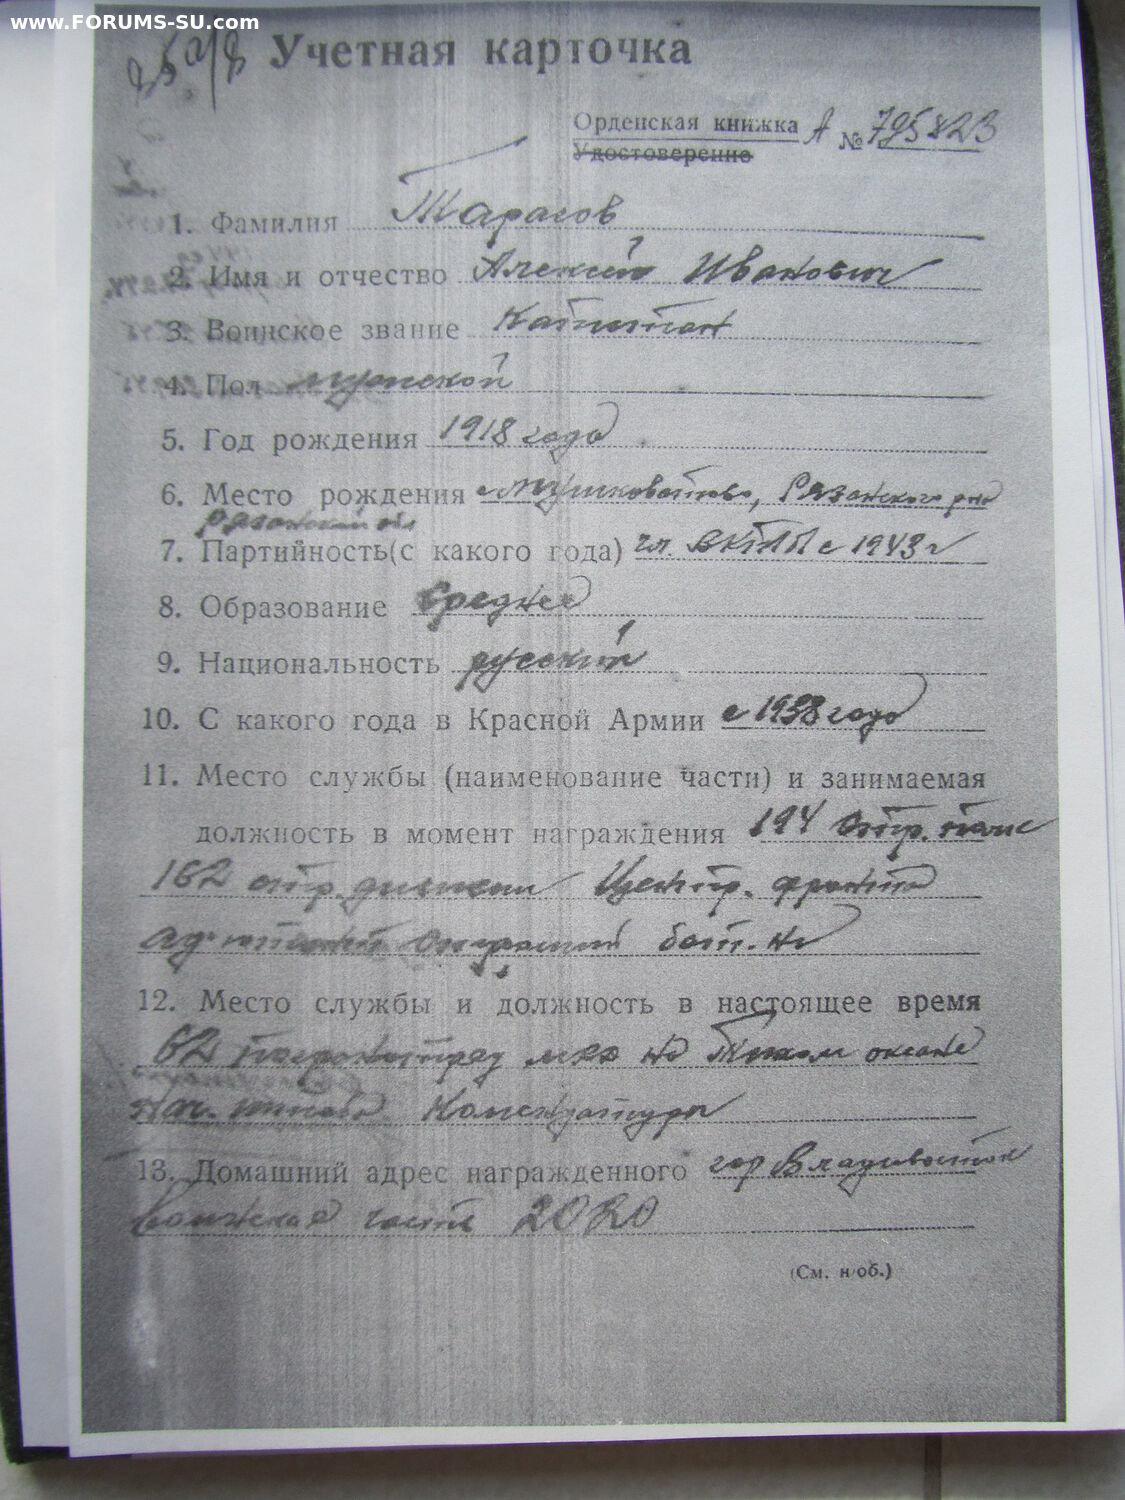 www.FORUMS-SU.com
Учетная карточка
Орденская книжка А № 795823
Удостоверение
1. Фамилия Тарасов
2. Имя и отчество Алексей Иванович
3. Воинское звание Капитан
4. Пол мужской
5. Год рождения 1918 года
6. Место рождения Рязанского р-на
Рязанской обл
7. Партийность(с какого года) чл ВКП/б/ с 1943 г
8. Образование Среднее
9. Национальность русский
10. С какого года в Красной Армии с 1938 года
11. Место службы (наименование части) и занимаемая
должность в момент награждения 194 стр. полк
162 стр. дивизии Центр. фронта
бат-на
12. Место службы и должность в настоящее время
62 погранотряд на Тихом океане
нач. штаба Комендатуры
13. Домашний адрес награжденного гор Владивосток
воинская часть 2020
(См. н/об.)